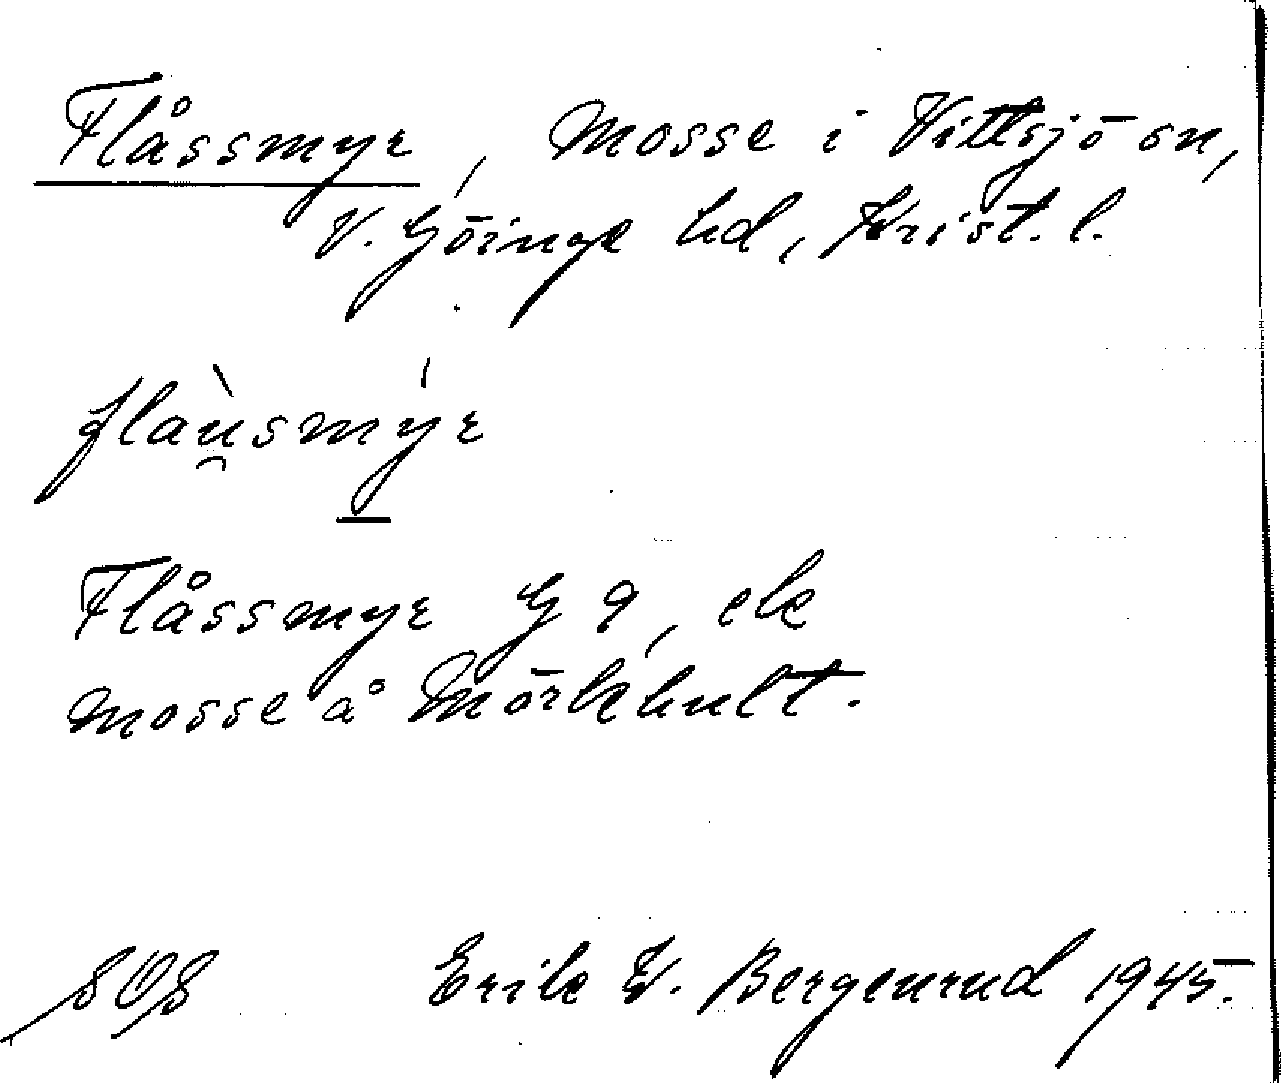 Flåssmyr, Mosse i Vittsjö sn,
V. Göinge hd, Krist. l.
flàu̯smýr
Flåssmyr G 9, ek
mosse å Mörkhult.
SOS Erik W. Bergenrud 1945.